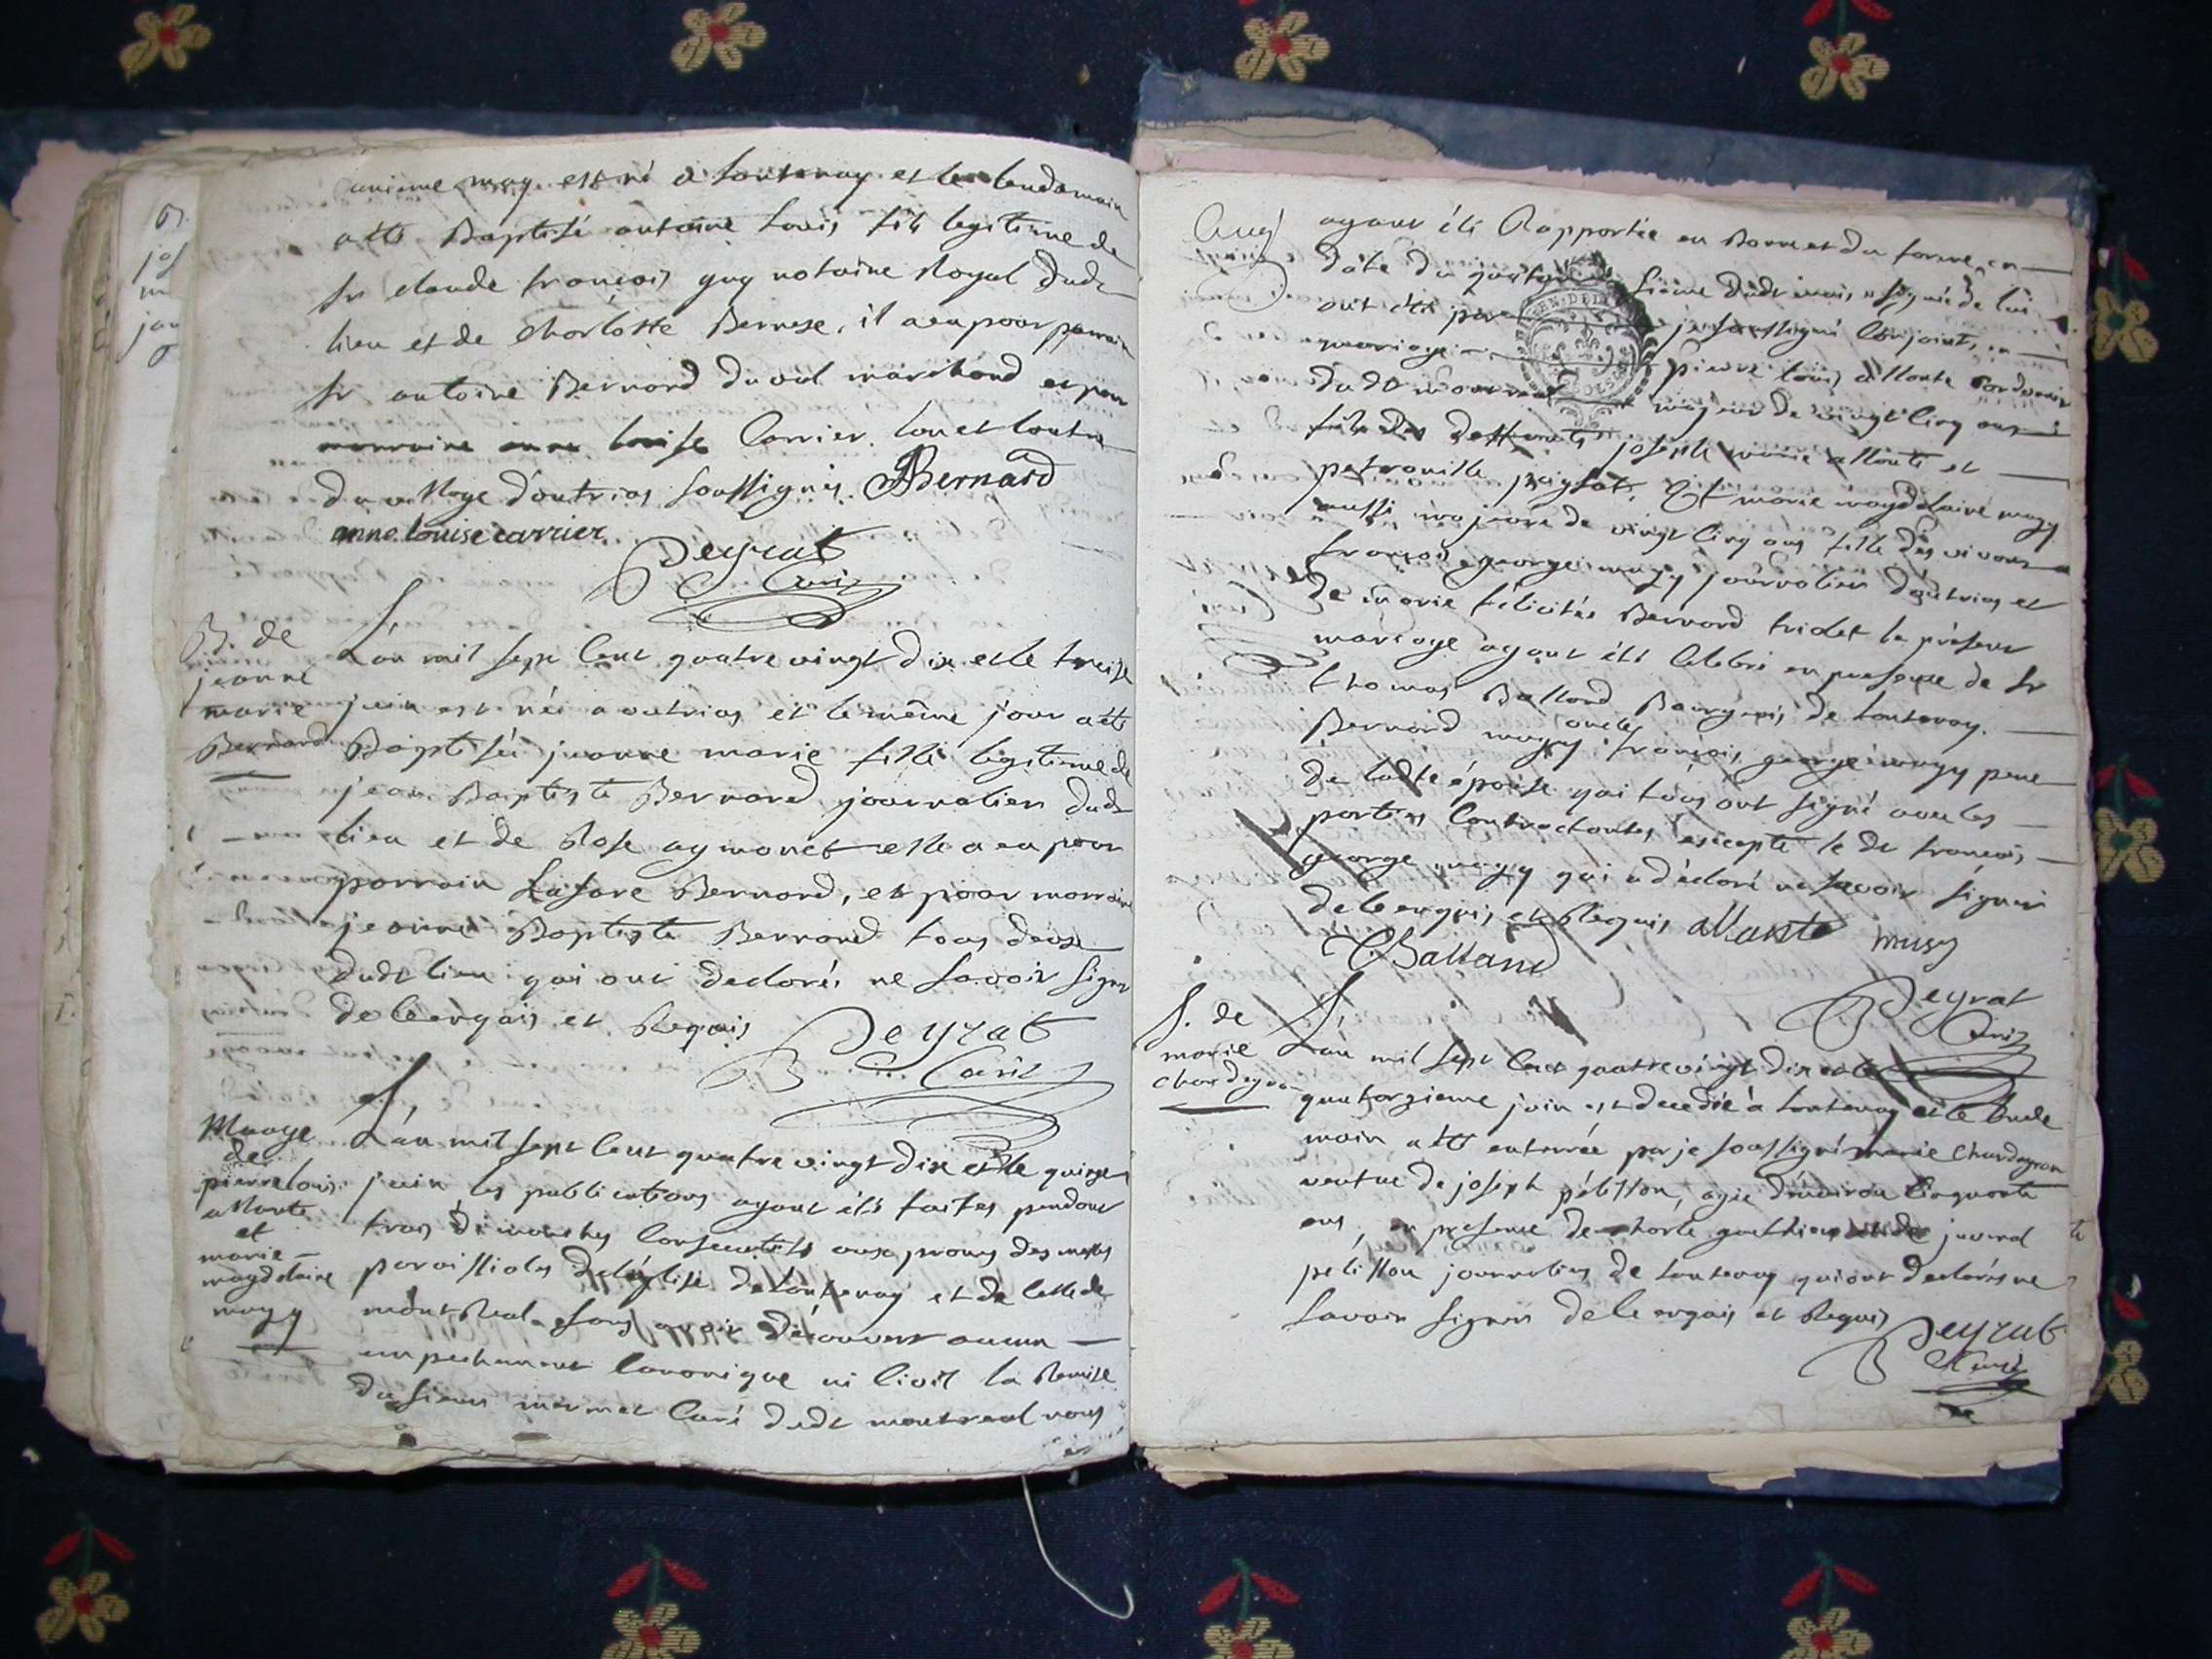 unieme may est né a Lantenay et le lendemain
a été Baptisé antoine Louis fils legitime de
Sr claude françois guy notaire Royal dudt
lieu et de Charlotte Bernese, il a eu pour parrain
Sr antoine Bernard marchand et pour
marraine anne louise Carrier
du village d'outrias soussignés. Bernard
anne louise carrier
Deyrat
Curé
B. de
jeanne
marie
Bernard
L'an mil sept Cent quatre vingt dix et le treize
juin est née a outrias et le même jour a été
Baptisée jeanne marie fille legitime de
jean Baptiste Bernard journalier dudt
lieu et de Rose aymonet elle a eu pour
parrain Lasare Bernard, et pour marraine
jeanne Baptiste Bernard tous deux
dudt lieu qui ont declarés ne savoir signer
de Ce enquis et Requis
Deyrat
Curé
Mariage
de
pierre louis
allante
et
marie
magdelaine
mugy
L'an mil sept Cent quatre vingt dix et le quinze
juin, les publications ayant été faites pendant
trois dimanches Consecutifs aux prones des messes
paroissiales de l'eglise de Lantenay et de Celle de
montReal sans avoir découvert aucun
empechement Canonique ni Civil la Remise
du sieur mermet Curé dudt montreal nous
ayant été Rapportée en Bonne et du forme en
date du dudt mois signée de lui
ont été par je soussigné Conjoints en
mariage pierre louis allante
dudt montreal majeur de vingt Cinq ans
fils des deffunts joseph marie allante et
petronille Et marie magdelaine mugy
aussi majeure de vingt Cinq ans fille des vivans
françois george mugy journalier d'outrias et
de marie felicitée Bernard tridet le présent
mariage ayant été Celebré en presence de Sr
thomas Balland Bourgeois de Lantenay.
Bernard mugy oncle françois george mugy pere
de ladte épouse qui tous ont signé avec les
parties Contractantes excepté le dt françois
george mugy qui a déclaré ne savoir signer
de Ce enquis et Requis allante musy
Balland
Deyrat
Curé
S. de
marie
Chardeyron
L'an mil sept Cent quatre vingt dix et le
quatorzieme juin est decedée a Lantenay et le lende
main a été enterrée par je soussigné marie Chardeyron
veufue de joseph pélisson, agée d'environ Cinquante
ans, en presence de Charle gauthier et de juvenal
pelisson journaliers de Lantenay qui ont declarés ne
savoir signer de Ce enquis et Requis
Deyrat
Curé